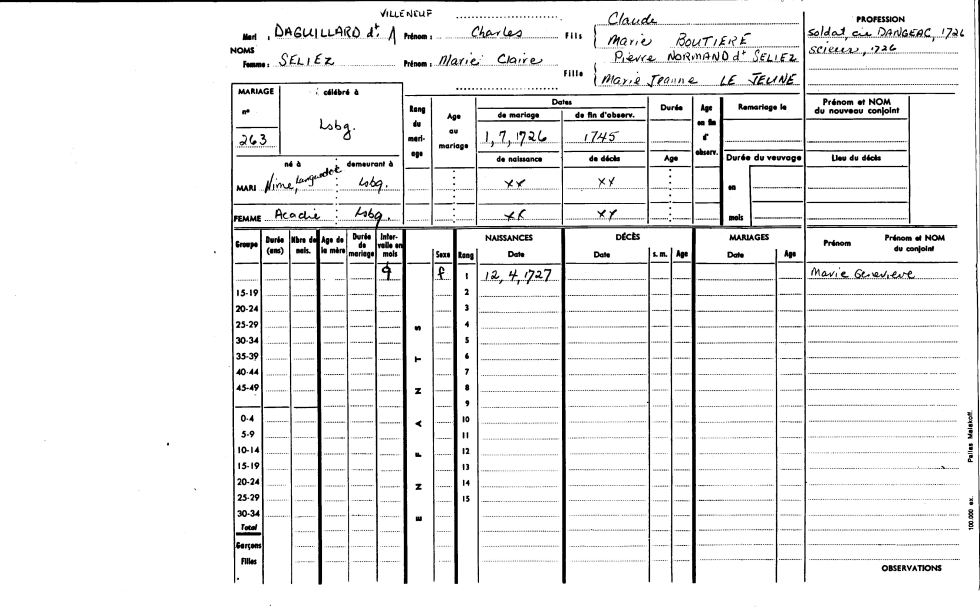 VILLENEUF
Mari : DAGUILLARD dt. Prénom : Charles Fils Claude
Marie BOUTIERE
NOMS
Femme : SELIEZ Prénom : Marie Claire Fille Pierre NORMAND dt SELIEZ
Marie Jeanne LE JEUNE
PROFESSION
soldat, cie DANGEAC, 1726
scieur, 1726
MARIAGE célébré à
n°
263 Lsbg.
né à demeurant à
MARI Nime, Languedoc Lsbg.
FEMME Acadie Lsbg.
Rang du mari-age
Age au mariage
Dates
de mariage de fin d'observ.
1, 7, 1726 1745
de naissance de décès
xx xx
xx xx
Durée
Age
Age en fin d' observ.
Remariage le
Durée du veuvage
en
mois
Prénom et NOM
du nouveau conjoint
Lieu du décès
Groupe Durée (ans) Nbre de nais. Age de la mère Durée de mariage Inter-valle en mois Sexe Rang NAISSANCES Date DÉCÈS Date s. m. Age MARIAGES Date Age Prénom Prénom et NOM du conjoint
9 f 1 12, 4, 1727 Marie Genevieve
15-19 2
20-24 3
25-29 4
30-34 5
35-39 6
40-44 7
45-49 8
9
0-4 10
5-9 11
10-14 12
15-19 13
20-24 14
25-29 15
30-34
Total
Garçons
Filles
ENFANTS
OBSERVATIONS
100.000 ex. Pallas Malakoff.